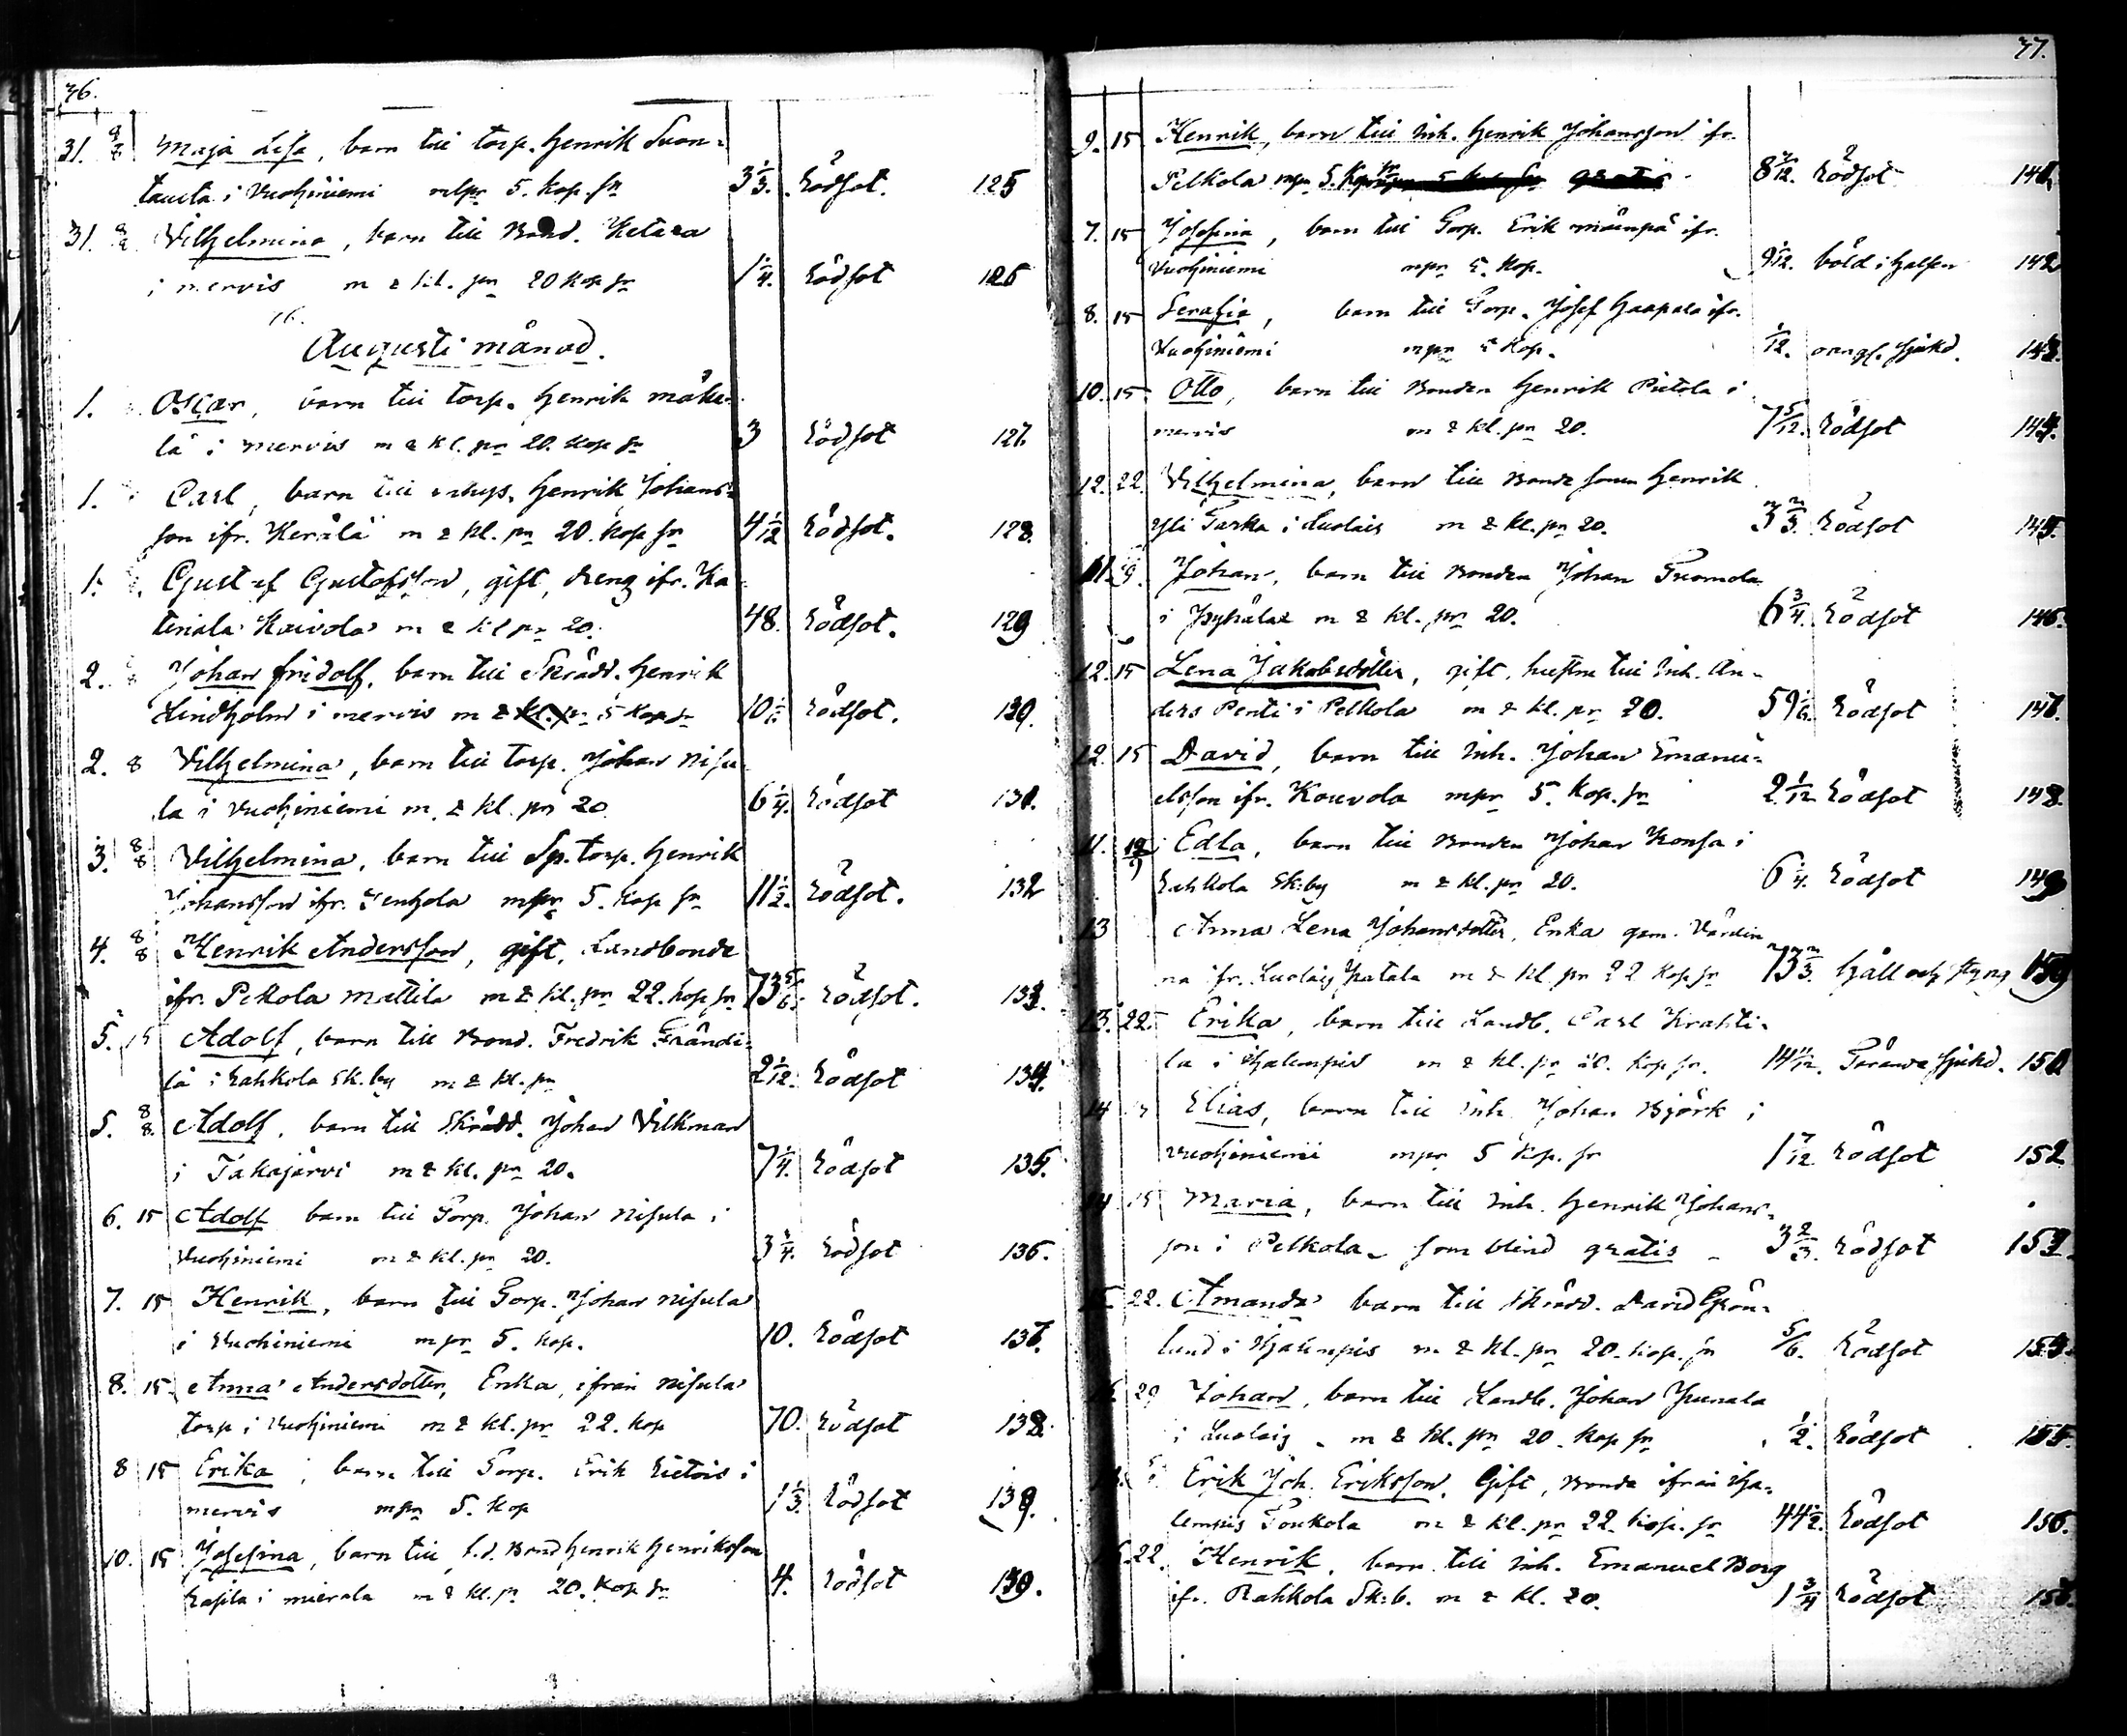 36.
31. 8/8 Maja Lisa, barn till torp. Henrik Suon-
tausta i Vuohiniemi mpr 5. kop. sr 3 1/3. Rödsot. 125
31. 8/8 Vilhelmina, barn till Bond. Ketara
i mervis m 2 kl. pr 20 kop sr 1 1/4. Rödsot 126
Augusti månad.
1. Oscar, barn till torp. Henrik mäke-
lä i mervis m 2 kl. pr 20. kop sr 3 Rödsot 127.
1. Carl, barn till Henrik Johans-
son ifr. Kerälä m 2 kl. pr 20. kop sr 4 1/2 Rödsot. 128.
1. Gustaf Gustafsson, gift, dreng ifr. Ka-
tinala Kaivola m 2 kl pr 20. 48. Rödsot. 129
2. Johan Fridolf, barn till Skrädd. Henrik
Lindholm i mervis m 5 kop sr Rödsot. 130.
2. 8 Vilhelmina, barn till torp. Johan Nisu-
la i Vuohiniemi m. 2 kl. pr 20 6 1/4. Rödsot 131.
3. 8/8 Vilhelmina, barn till Sp. torp. Henrik
Johansson ifr. mpr 5. kop sr 11 1/2. Rödsot. 132
4. 8/8 Henrik Andersson, gift, Landbonde
ifr. Pekola Mattila m 2 kl. pr 22. kop sr 73 5/6. Rödsot. 133.
5. 15 Adolf, barn till Bond. Fredrik Frändi-
lä i Rahkola Sk.by m 2 kl. pr 2 1/12. Rödsot 134.
5. 8/8. Adolf, barn till Skrädd. Johan Vilkman
i Takajärvi m 2 kl. pr 20. 7 1/4. Rödsot 135.
6. 15 Adolf barn till Torp. Johan Nisula i
Vuohiniemi m 2 kl. pr 20. 3 3/4. Rödsot 136.
7. 15 Henrik, barn till Torp. Johan Nisula
i Vuohiniemi mpr 5. kop. 10. Rödsot 137.
8. 15. Anna Andersdotter, Enka, ifrån Nisula
torp i Vuohiniemi m 2 kl. pr 22. kop 70. Rödsot 138.
8 15 Erika, barn till Torp. Erik i
mervis mpr 5. kop 1 1/3. Rödsot 139.
10. 15 Josefina, barn till f.d. Bond Henrik Henriksson
i mierala m 2 kl. pr 20. kop sr 4. Rödsot 139.
37.
9. 15 Henrik, barn till Inh. Henrik Johansson ifr.
Pelkola mpr 5. kop 8 7/12. Rödsot 141.
7. 15 Josefina, barn till Torp. Erik mäenpä ifr.
Vuohiniemi mpr 5. kop. 9 1/12. böld i halsen 142
8. 15 Serafia, barn till Torp. Josef Haapala ifr.
Vuohiniemi mpr 5 kop. 1/12. sjukd. 143.
10. 15 Otto, barn till Bonden Henrik Pietola i
mervis m 2 kl. pr 20. 7 5/12. Rödsot 144.
12. 22. Vilhelmina, barn till Bonde sonen Henrik
Yli Parka i Luolais m 2 kl. pr 20. 3 2/3. Rödsot 145.
11. 9. Johan, barn till Bonden Johan Tuomola
i m 2 kl. pr 20. 6 3/4. Rödsot 146.
12. 15 Lena Jakobsdotter, gift, hustru till Inh. An-
ders Penti i Pelkola m 2 kl. pr 20. 59 1/6. Rödsot 147.
12. 15 David, barn till Inh. Johan Emanu-
elsson ifr. Kouvola mpr 5. kop. sr 2 1/12 Rödsot 148
11. Edla, barn till Bonden Johan Konsa i
Rahkola Sk:by m 2 kl. pr 20. 6 1/4. Rödsot 149
13 Anna Lena Johansdotter, Enka gam. Värdin-
na ifr. Luolais m 2 kl pr 22 kop sr 73 2/3. håll och styng 150
13. 22. Erika, barn till Landb. Carl Krahti-
la i Hjalempis m 2 kl. pr 20. kop sr. 14 11/12. sjukd. 151
14 Elias, barn till Inh. Johan Björk i
Vuohiniemi mpr 5 kop. sr 1 7/12 Rödsot 152
14 15 Maria, barn till Inh. Henrik Johans-
son i Pelkola som blind gratis 3 2/3. Rödsot 153.
22. Amanda barn till Skrädd. David Grön-
lund i Hjalempis m 2 kl. pr 20. kop. sr 5/6. Rödsot 154.
29 Johan, barn till Landb. Johan Junnala
i Luolais m 2 kl. pr 20. kop sr 1/2. Rödsot 155.
Erik Joh. Eriksson, Gift, Bonde ifrån Hja-
lempis Toukola m 2 kl. pr 22. kop. sr 44 1/2. Rödsot 156.
22. Henrik, barn till Inh. Emanuel Borg
ifr. Rahkola Sk:b. m 2 kl. 20. 1 3/4 Rödsot 157.